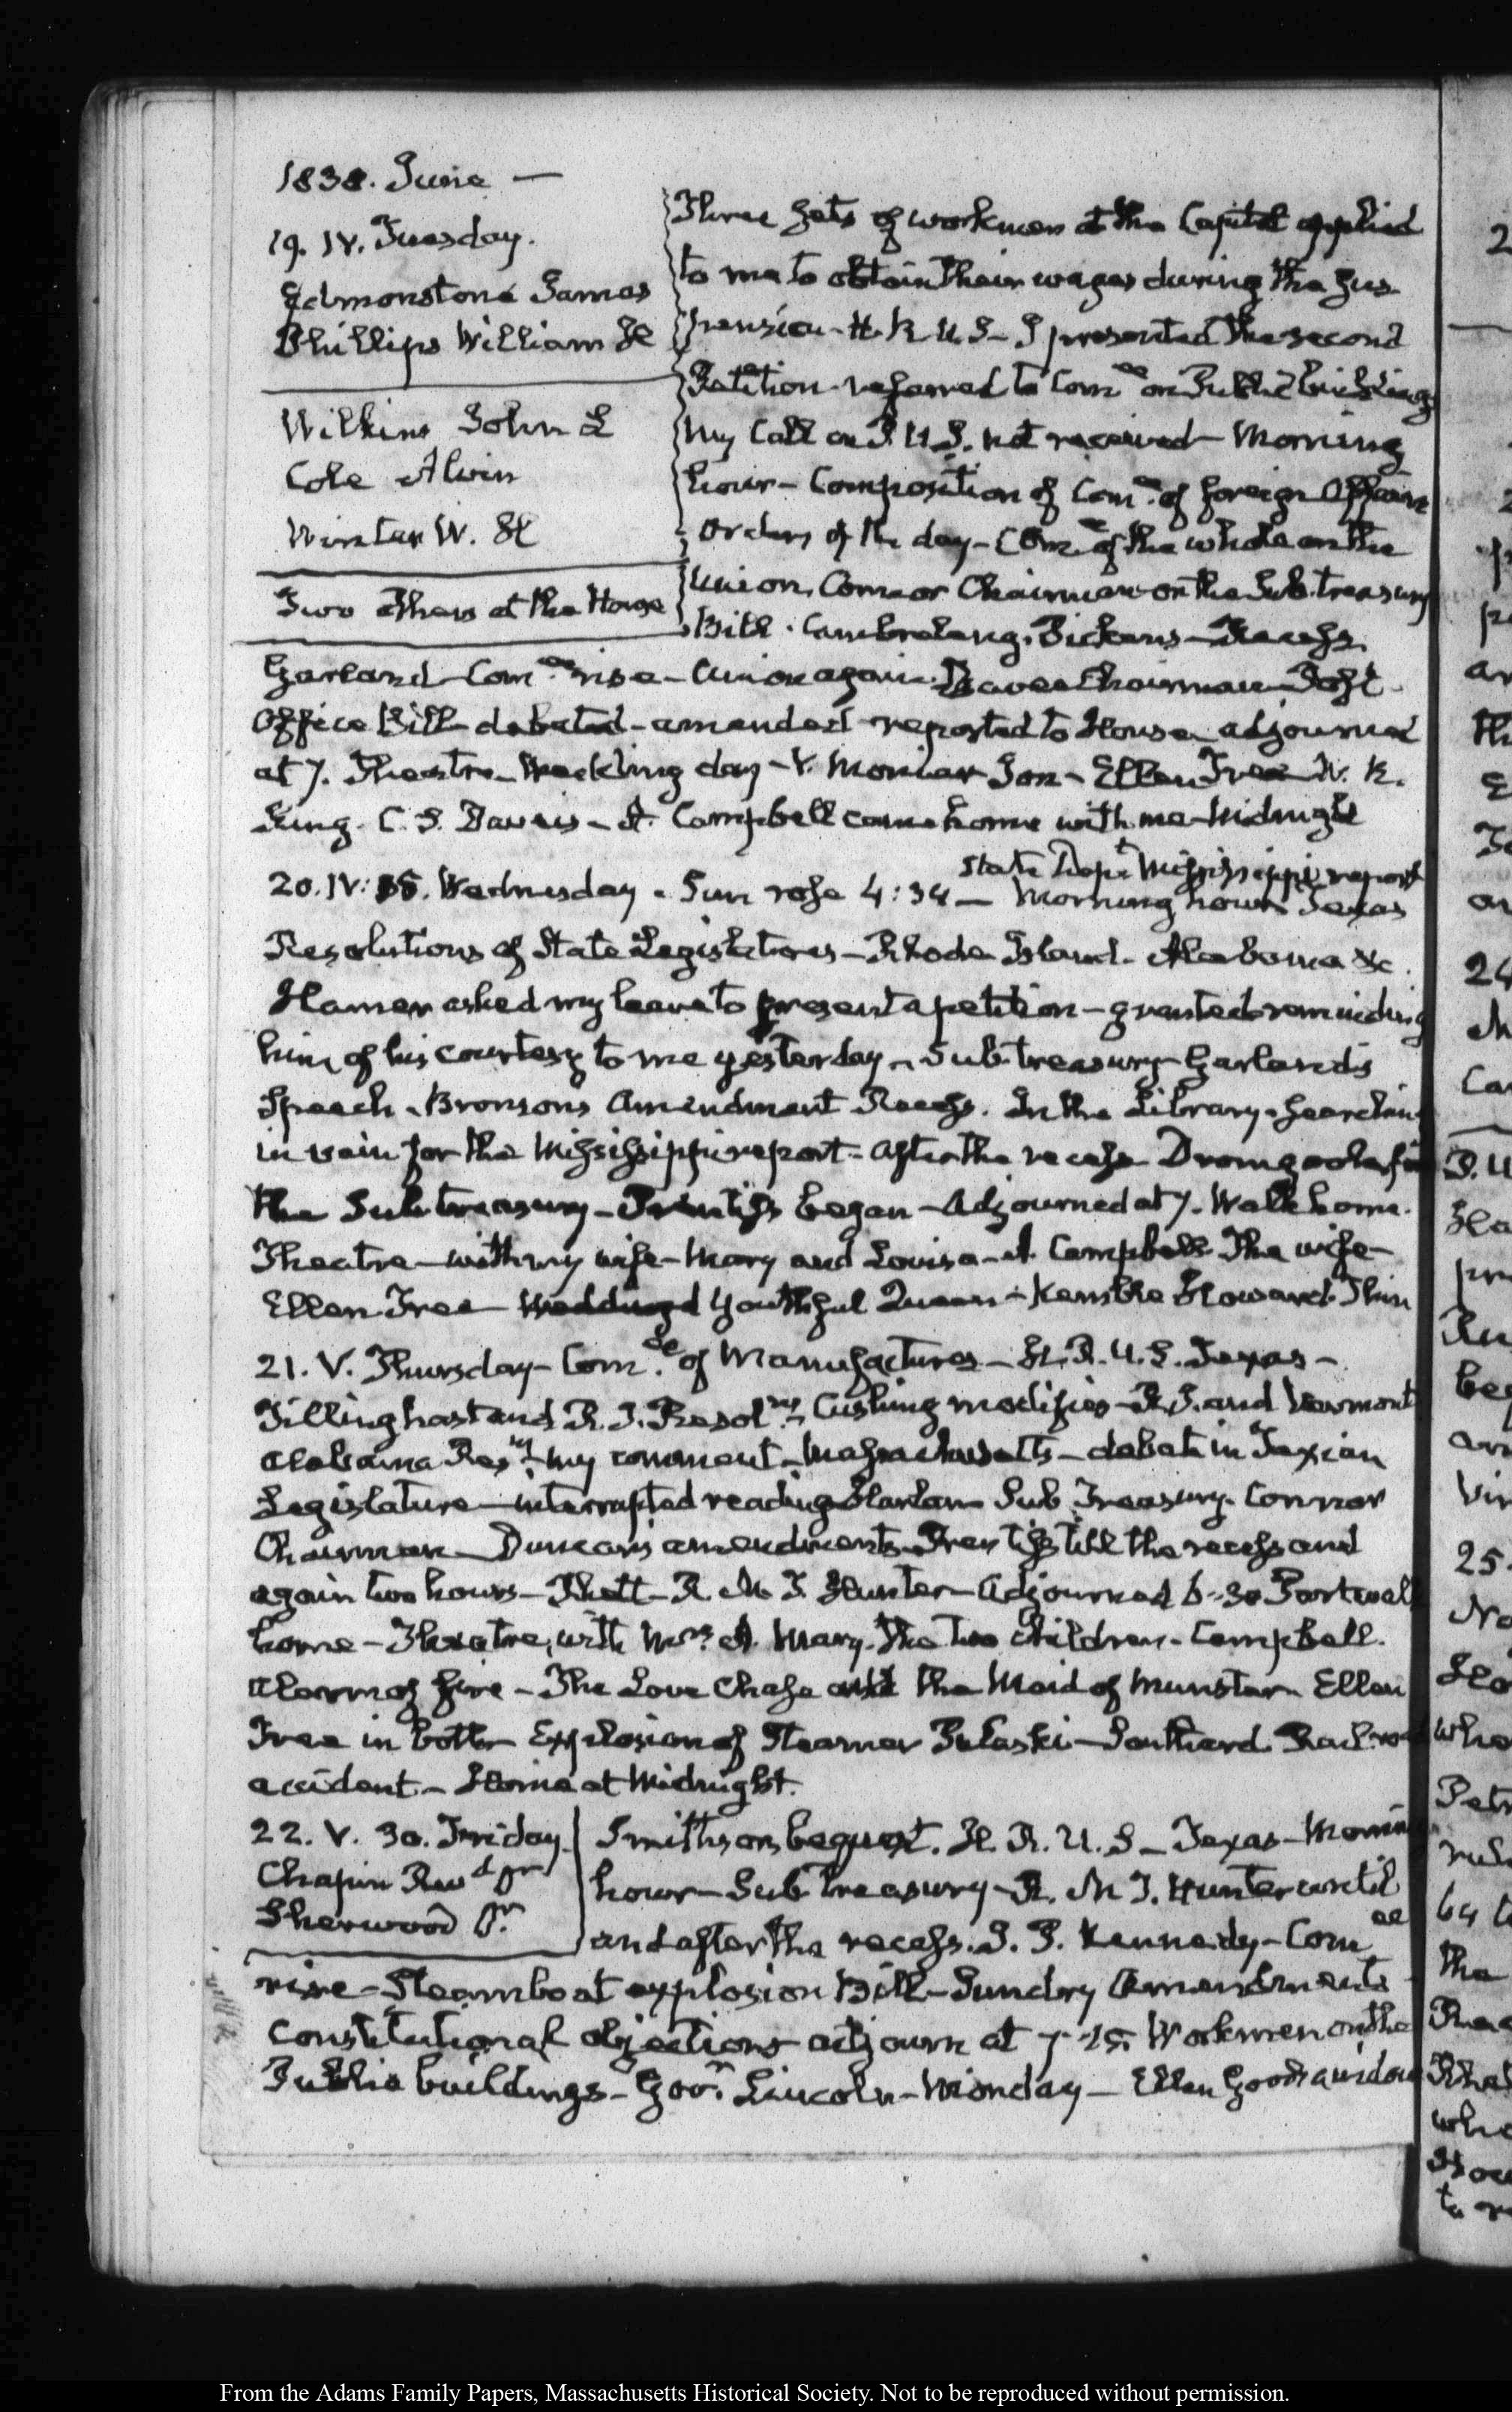 1838. June —
19. IV. Tuesday.
Edmonstone James
Phillips William H
Wilkins John L
Cole Alvin
Winter W. H
Two others at the House
Three sets of workmen at the Capitol applied
to me to obtain their wages during the sus
pension - H. R. U. S - I presented the second
Petition - referred to Com.ee on Public buildings
My Call on P. U. S. not received - Morning
hour - Composition of Com.ee of foreign Affairs
Orders of the day - Com.ee of the whole on the
Union, Connor Chairman on the Sub. treasury
Bill. Cambreleng. Pickens - Recess.
Garland - Com.ee rise - Union again. Chairman Post
Office Bill debated - amended - reported to House adjourned
at 7. Theatre - day - Ellen Tree W. R.
King. C. S. Davies - A. Campbell came home with me Midnight
20. IV: 35. Wednesday. Sun rose 4:34 — Morning hour Texas
State Dept Mississippi report
Resolutions of State Legislatures - Rhode Island - Alabama &c.
Hamer asked my leave to present a petition - granted reminding
him of his courtesy to me yesterday - Sub treasury - Garland's
Speech - Bronsons Amendment Recess. In the Library - searching
in vain for the Mississippi report - after the recess Dromgoole for
the Sub treasury - Prentiss began - Adjourned at 7. Walk home.
Theatre - with my wife - Mary and Louisa - A. Campbell. The wife -
Ellen Tree - Youthful Queen - Kemble Howard Thin
21. V. Thursday - Com.ee of Manufactures - H. R. U. S. Texas -
Tillinghast and R. I. Resol.ns Cushing modifies - R. I. and Vermont
Alabama Res.ns my comment - Massachusetts - debate in Texian
Legislature - interrupted reading Harlan Sub Treasury. Connor
Chairman - Duncan's amendments - Prentiss till the recess and
again two hours - Rhett - R. M. T. Hunter - Adjourned 6-30 Part walk
home - Theatre, with Mrs. A. Mary. the two Children - Campbell.
Alarm of fire - The Love Chase and the Maid of Munster - Ellen
Tree in both - Explosion of Steamer Pulaski - Southard Rail road
accident - Home at Midnight.
22. V. 30. Friday
Chapin Revd Dr
Sherwood Dr
Smithson bequest. H. R. U. S - Texas - Morning
hour - Sub Treasury - R. M. T. Hunter until
and after the recess. J. P. Kennedy - Com.ee
rise - Steamboat explosion Bill - Sundry Amendments -
Constitutional objections adjourn at 7-15. Workmen on the
Public buildings - Gov.r Lincoln - Monday - Ellen
From the Adams Family Papers, Massachusetts Historical Society. Not to be reproduced without permission.